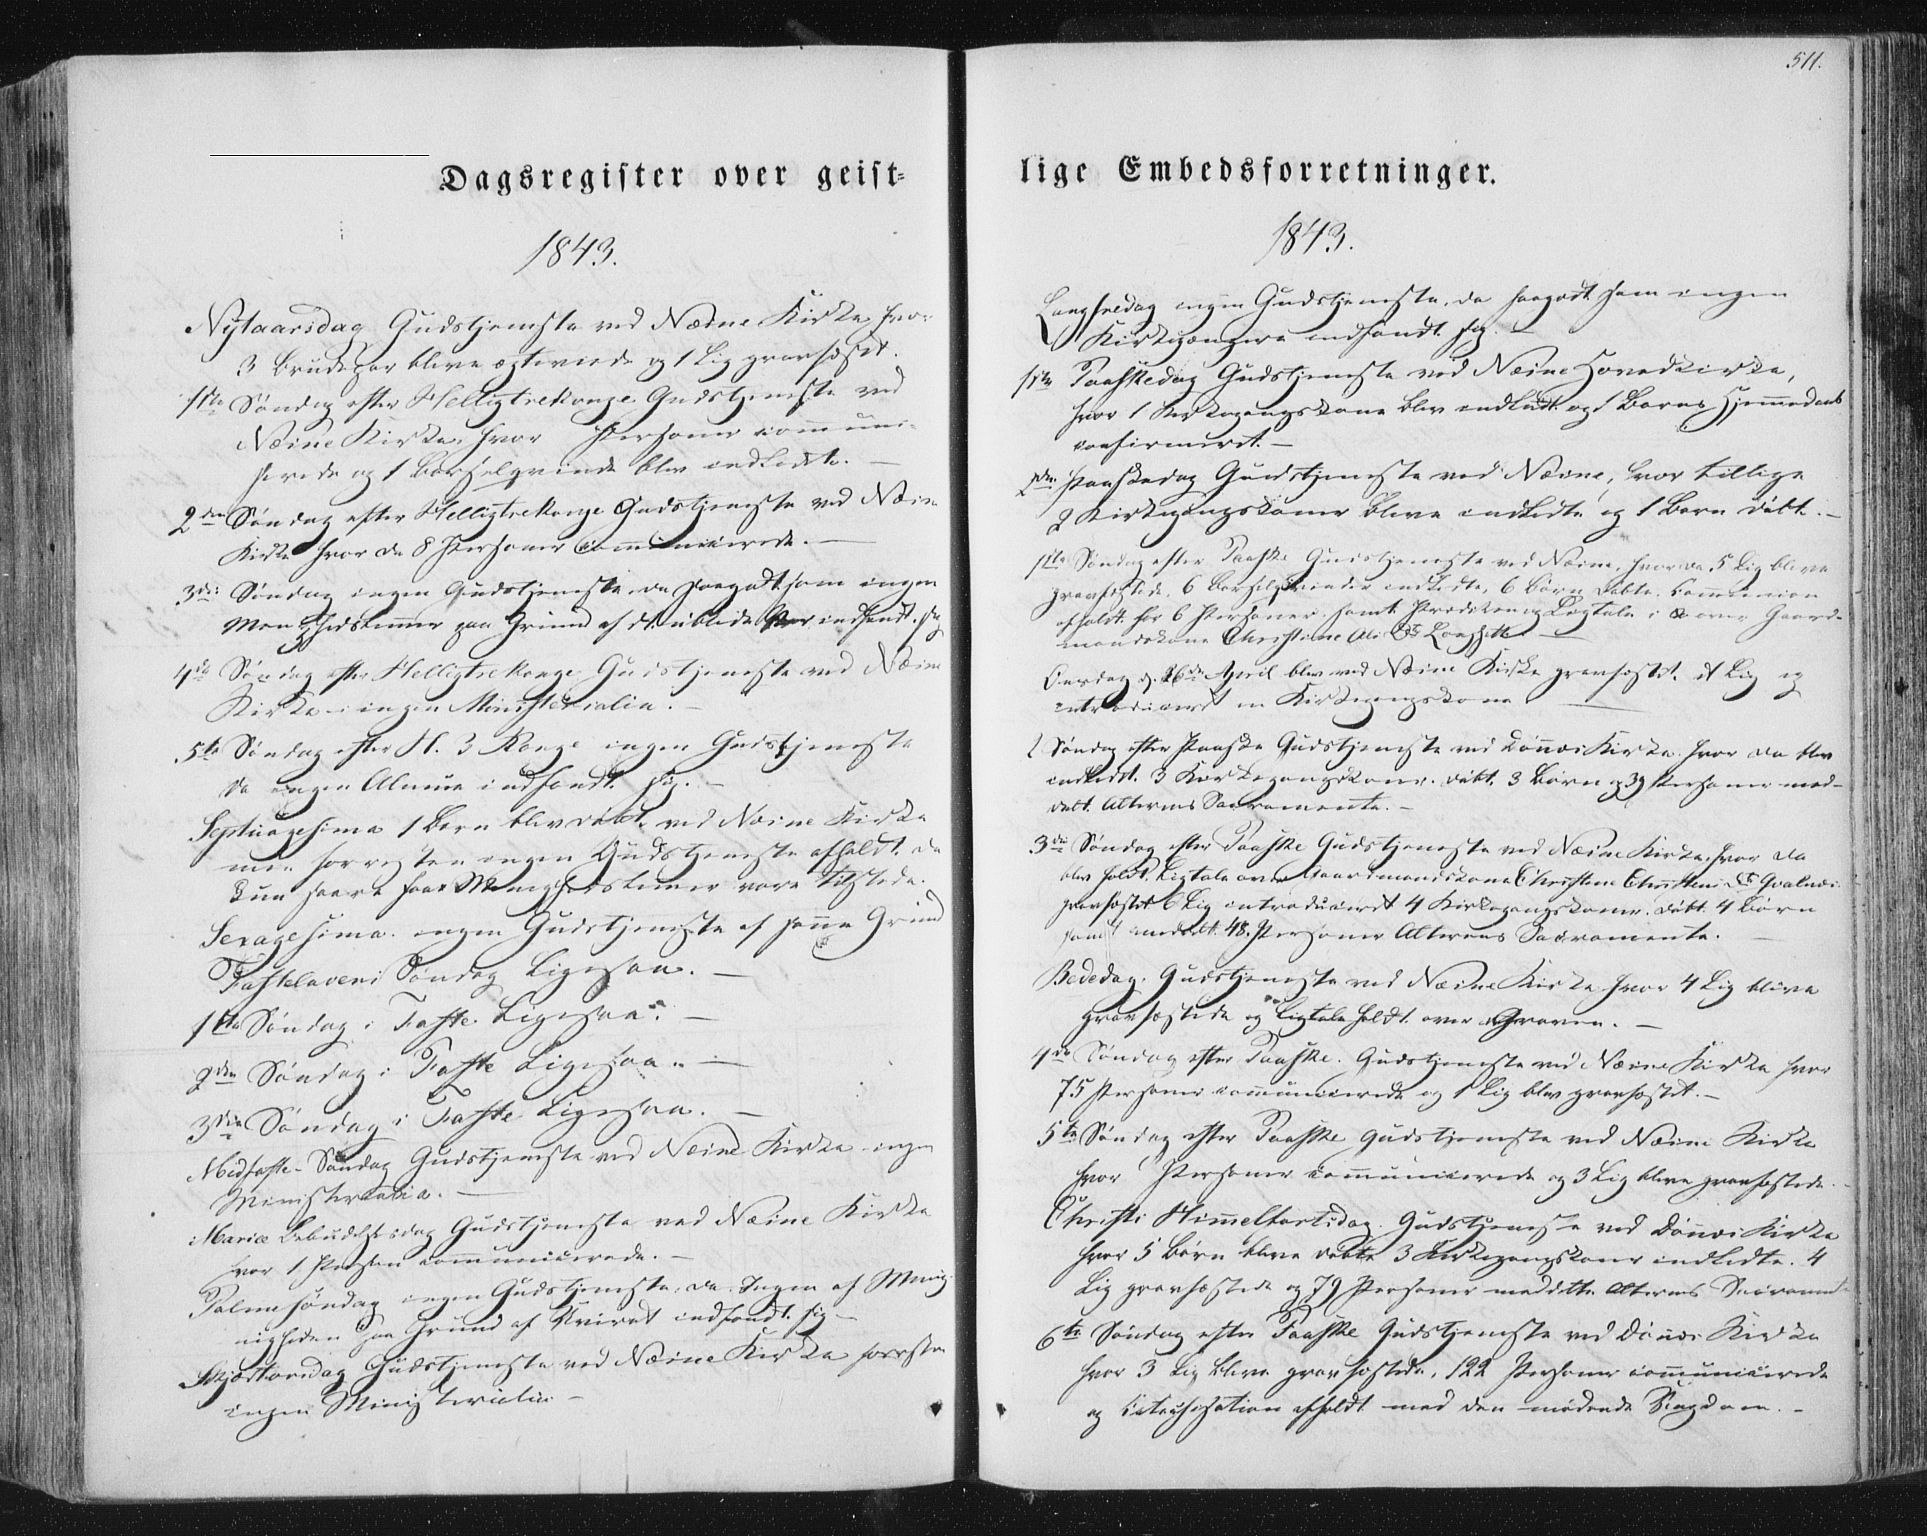 Dagsregister over geist-
1843.
Nytaarsdag Gudstjeneste ved Næsne Kirke, hvor
3 Brudepar bleve egteviede og 1 Lig gravfæstet.
1ste Søndag efter Helligtrekonge Gudstjeneste ved
Næsne Kirke, hvor Personer communi-
serede og 1 Barselqvinde blev indledt. —
2den Søndag efter Helligtrekonge Gudstjeneste ved Næsne
Kirke hvor da 8 Personer communicerede. —
3die Søndag ingen Gudstjeneste da saagodtsom ingen
Menighedslemmer paa Grund af det ublide Veir indfandt sig
4de Søndag efter Helligtrekonge Gudstjeneste ved Næsne
Kirke – ingen Ministerialia. —
5te Søndag efter H. 3 Konge ingen Gudstjeneste
da ingen Almue indfandt sig. —
Septuagesima 1 Barn blev døbt ved Næsne Kirke
men forresten ingen Gudstjeneste afholdt, da
kun faa Menighedslemmer vare tilstede.
Sexagesima ingen Gudstjeneste af samme Grund
Fastelavens Søndag Ligesaa. —
1ste Søndag i Faste Ligesaa. —
2den Søndag i Faste Ligesaa. —
3die Søndag i Faste Ligesaa. —
Midfaste-Søndag Gudstjeneste ved Næsne Kirke – ingen
Ministerialia. —
Mariæ Bebudelsesdag Gudstjeneste ved Næsne Kirke
hvor 1 Person communicerede. —
Palmesøndag ingen Gudstjeneste, da Ingen af Menig-
nigheden paa Grund af Uveiret indfandt sig —
Skjærtorsdag Gudstjeneste ved Næsne Kirke forresten
ingen Ministerialia —
511.
lige Embedsforretninger.
1843.
Langfredag ingen Gudstjeneste, da saagodt som ingen
Kirkegængere indfandt sig. —
1ste Paaskedag Gudstjeneste ved Næsne Hovedkirke,
hvor 1 Kirkegangskone blev indledt og 1 Barns Hjemmedaab
confirmeret. —
2den Paaskedag Gudstjeneste ved Næsne, hvor tillige
2 Kirkegangskoner bleve indledte og 1 Barn døbt. —
1ste Søndag efter Paaske Gudstjeneste ved Næsne, hvor da 5 Lig bleve
gravfæstede, 6 Barselqvinder indledte, 6 Børn døbte, Communion
afholdt for 6 Personer, samt Prædiken og Ligtale over Gaard-
mandskone Christine
Onsdag d. 26de April blev ved Næsne Kirke gravfæstet et Lig og
introduceret en Kirkegangskone —
2 Søndag efter Paaske Gudstjeneste ved Dønnæs Kirke hvor da blev
indledt 3 Kirkegangskoner, døbt 3 Børn og 39 Personer med-
delt Alterens Sacramente. —
3die Søndag efter Paaske Gudstjeneste ved Næsne Kirke, hvor da
blev holdt Ligtale over Gaardmandskone Christene
gravfæstet 6 Lig introduceret 4 Kirkegangskoner, døbt 4 Børn
samt meddelt 48 Personer Alterens Sacramente. —
Bededag Gudstjeneste ved Næsne Kirke hvor 4 Lig bleve
gravfæstede og Ligtale holdt over Graven. —
4de Søndag efter Paaske Gudstjeneste ved Næsne Kirke hvor
75 Personer communicerede og 1 Lig blev gravfæstet. —
5te Søndag efter Paaske Gudstjeneste ved Næsne Kirke
hvor Personer communicerede og 3 Lig bleve gravfæstede. —
Christi Himmelfartsdag Gudstjeneste ved Dønnæs Kirke
hvor 5 Børn bleve døbte 3 Kirkegangskoner indledte. 4
Lig gravfæstede og 79 Personer meddelte Alterens Sacrament
6te Søndag efter Paaske Gudstjeneste ved Dønnæs Kirke
hvor 3 Lig bleve gravfæstede, 122 Personer communicerede
og Catechisation afholdt med den mødende Ungdom. —